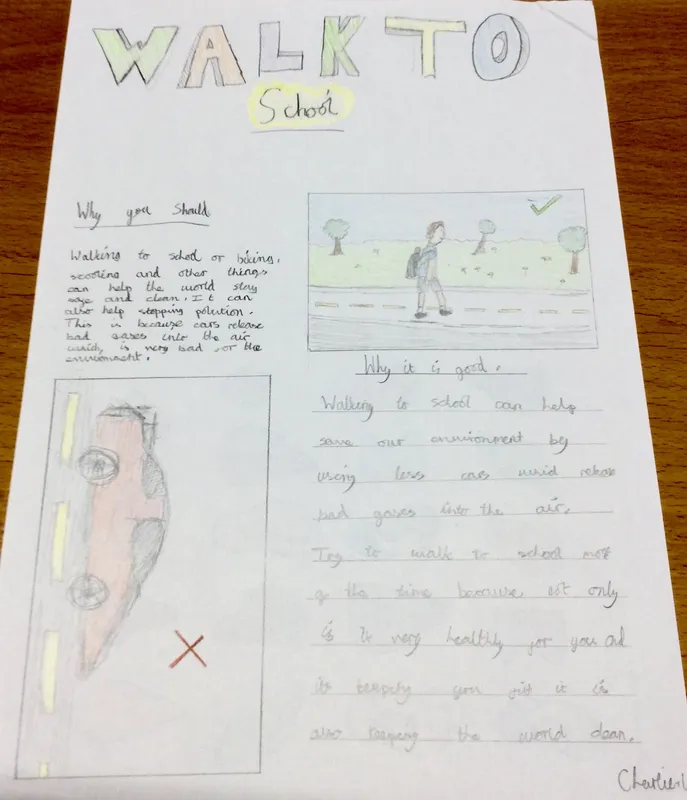 WALK TO
School
Why you Should
Walking to school or biking,
scooting and other things
can help the world stay
safe and clean. It can
also help stopping polution.
This is because cars release
bad gases into the air
wich is very bad for the
environment.
Why it is good.
Walking to school can help
save our environment by
using less cars wich release
bad gases into the air.
Try to walk to school most
of the time because not only
is it very healthy for you and
it is
also keeping the world clean.
Charlie